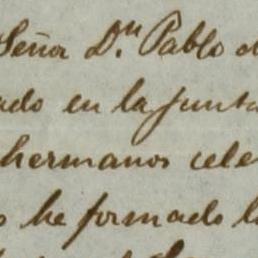 Señor D.ⁿ Pablo d
ado en la Junta
hermanos cele
s he formado l